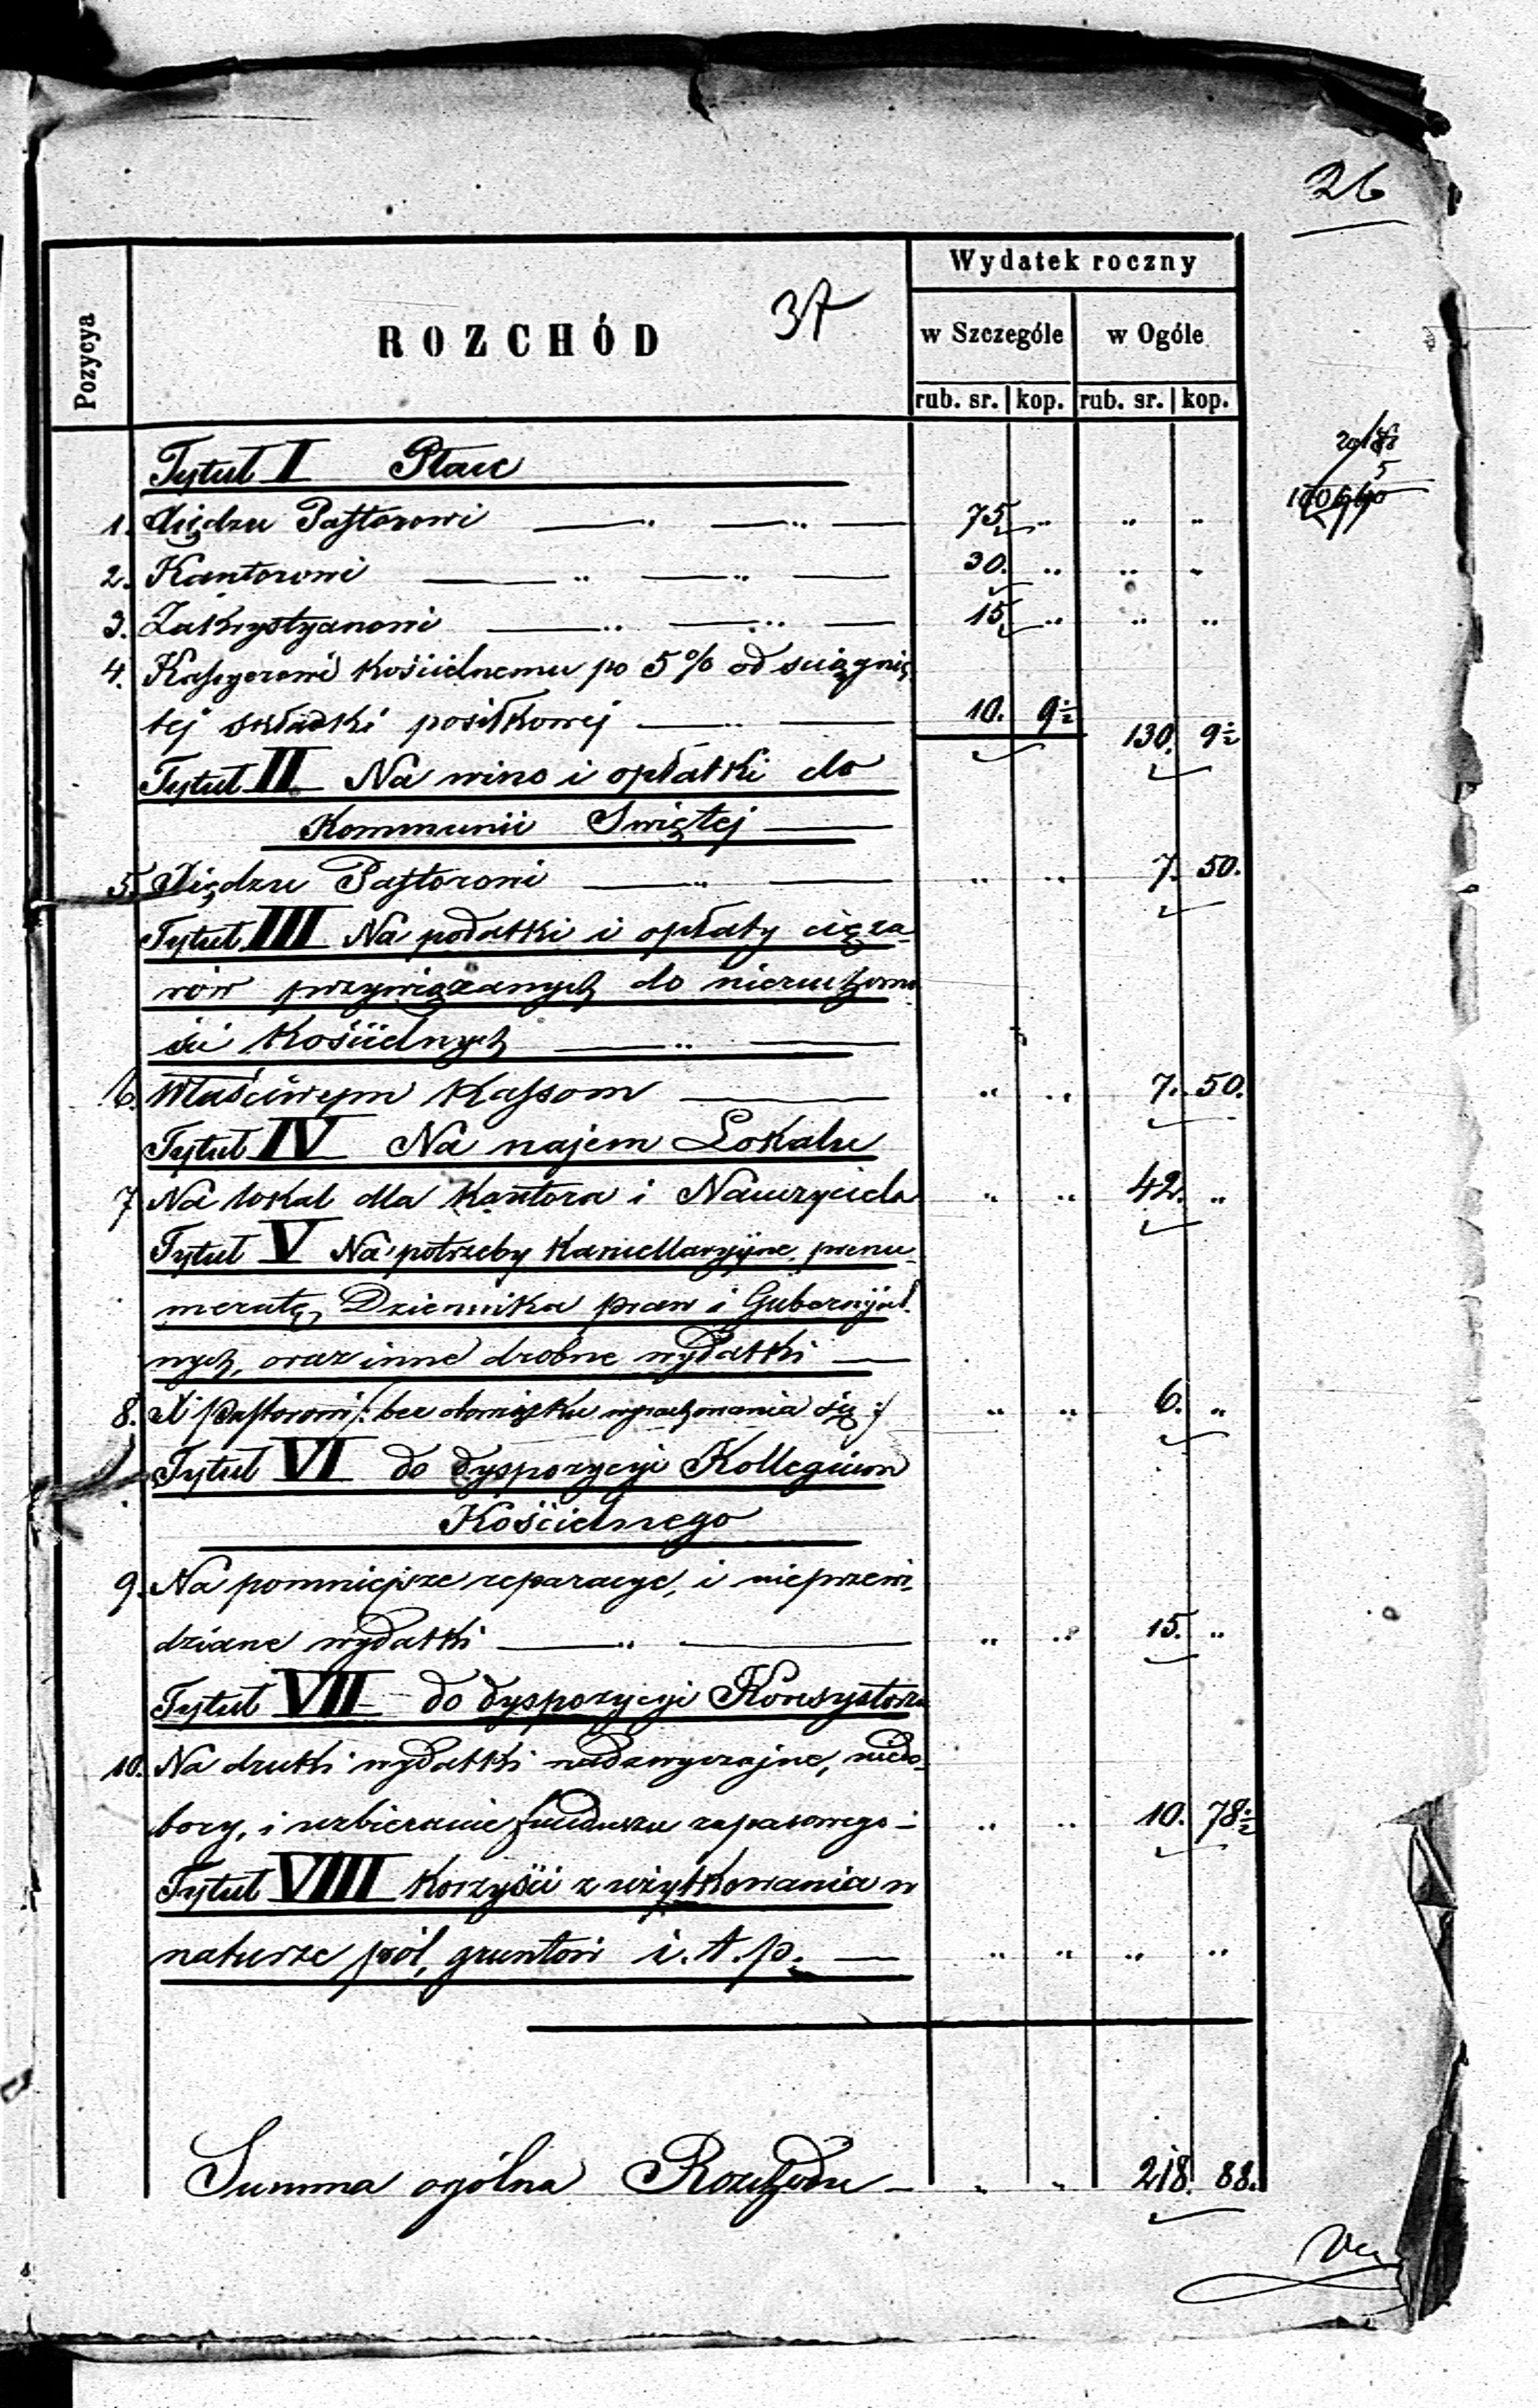 26
Pozycya
ROZCHÓD
37
Wydatek roczny
w Szczególe w Ogóle
rub. sr. kop. rub. sr. kop.
Tytuł I Płace
1. Xiędzu Pastorowi 75. " " "
2. Kantorowi 30. " " "
3. Zakrystyanowi 15. " " "
4. Kassyerowi kościelnemu po 5% od sciągnię
tej składki posiłkowej 10. 9½ 130. 9½
Tytuł II Na wino i opłatki do
Kommunii Swiętej
5. Xiędzu Pastorowi " " 7. 50.
Tytuł III Na podatki i opłaty cięża-
rów przywiązanych do nieruchomo
ści Kościelnych
6. Właściwym Kassom " " 7. 50.
Tytuł IV Na najem Lokalu
7 Na lokal dla Kantora i Nauczyciela " " 42. "
Tytuł V Na potrzeby Kancellaryjne, prenu-
meratę, Dziennika praw i Gubernijal.
nych, oraz inne drobne wydatki
8. X Pastorowi /: bez obowiązku wyrachowania się :/ " " 6. "
Tytuł VI do dyspozycyi Kollegium
Kościelnego
9. Na pomniejsze reparacye, i nieprzewi-
dziane wydatki " " 15. "
Tytuł VII do dyspozycyi Konsystorza
10. Na druki wydatki nadzwyczajne, niedo-
bory, i uzbieranie funduszu zapasowego " " 10. 78½
Tytuł VIII Korzyści z użytkowania w
naturze pól, gruntów i. t. p. " " " "
Summa ogólna Rozchodu " " 218. 88.